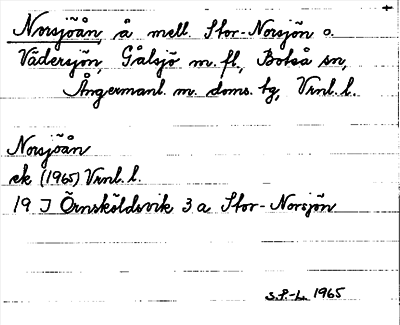 Norsjöån, å mell. Stor-Norsjön o.
Vädersjön, Gålsjö m. fl, Boteå sn,
Ångermanl. m. doms. tg, Vrnl. l.
Norsjöån
ek (1965) Vrnl. l.
19 J Örnsköldsvik 3 a Stor-Norsjön
S.P.-L. 1965